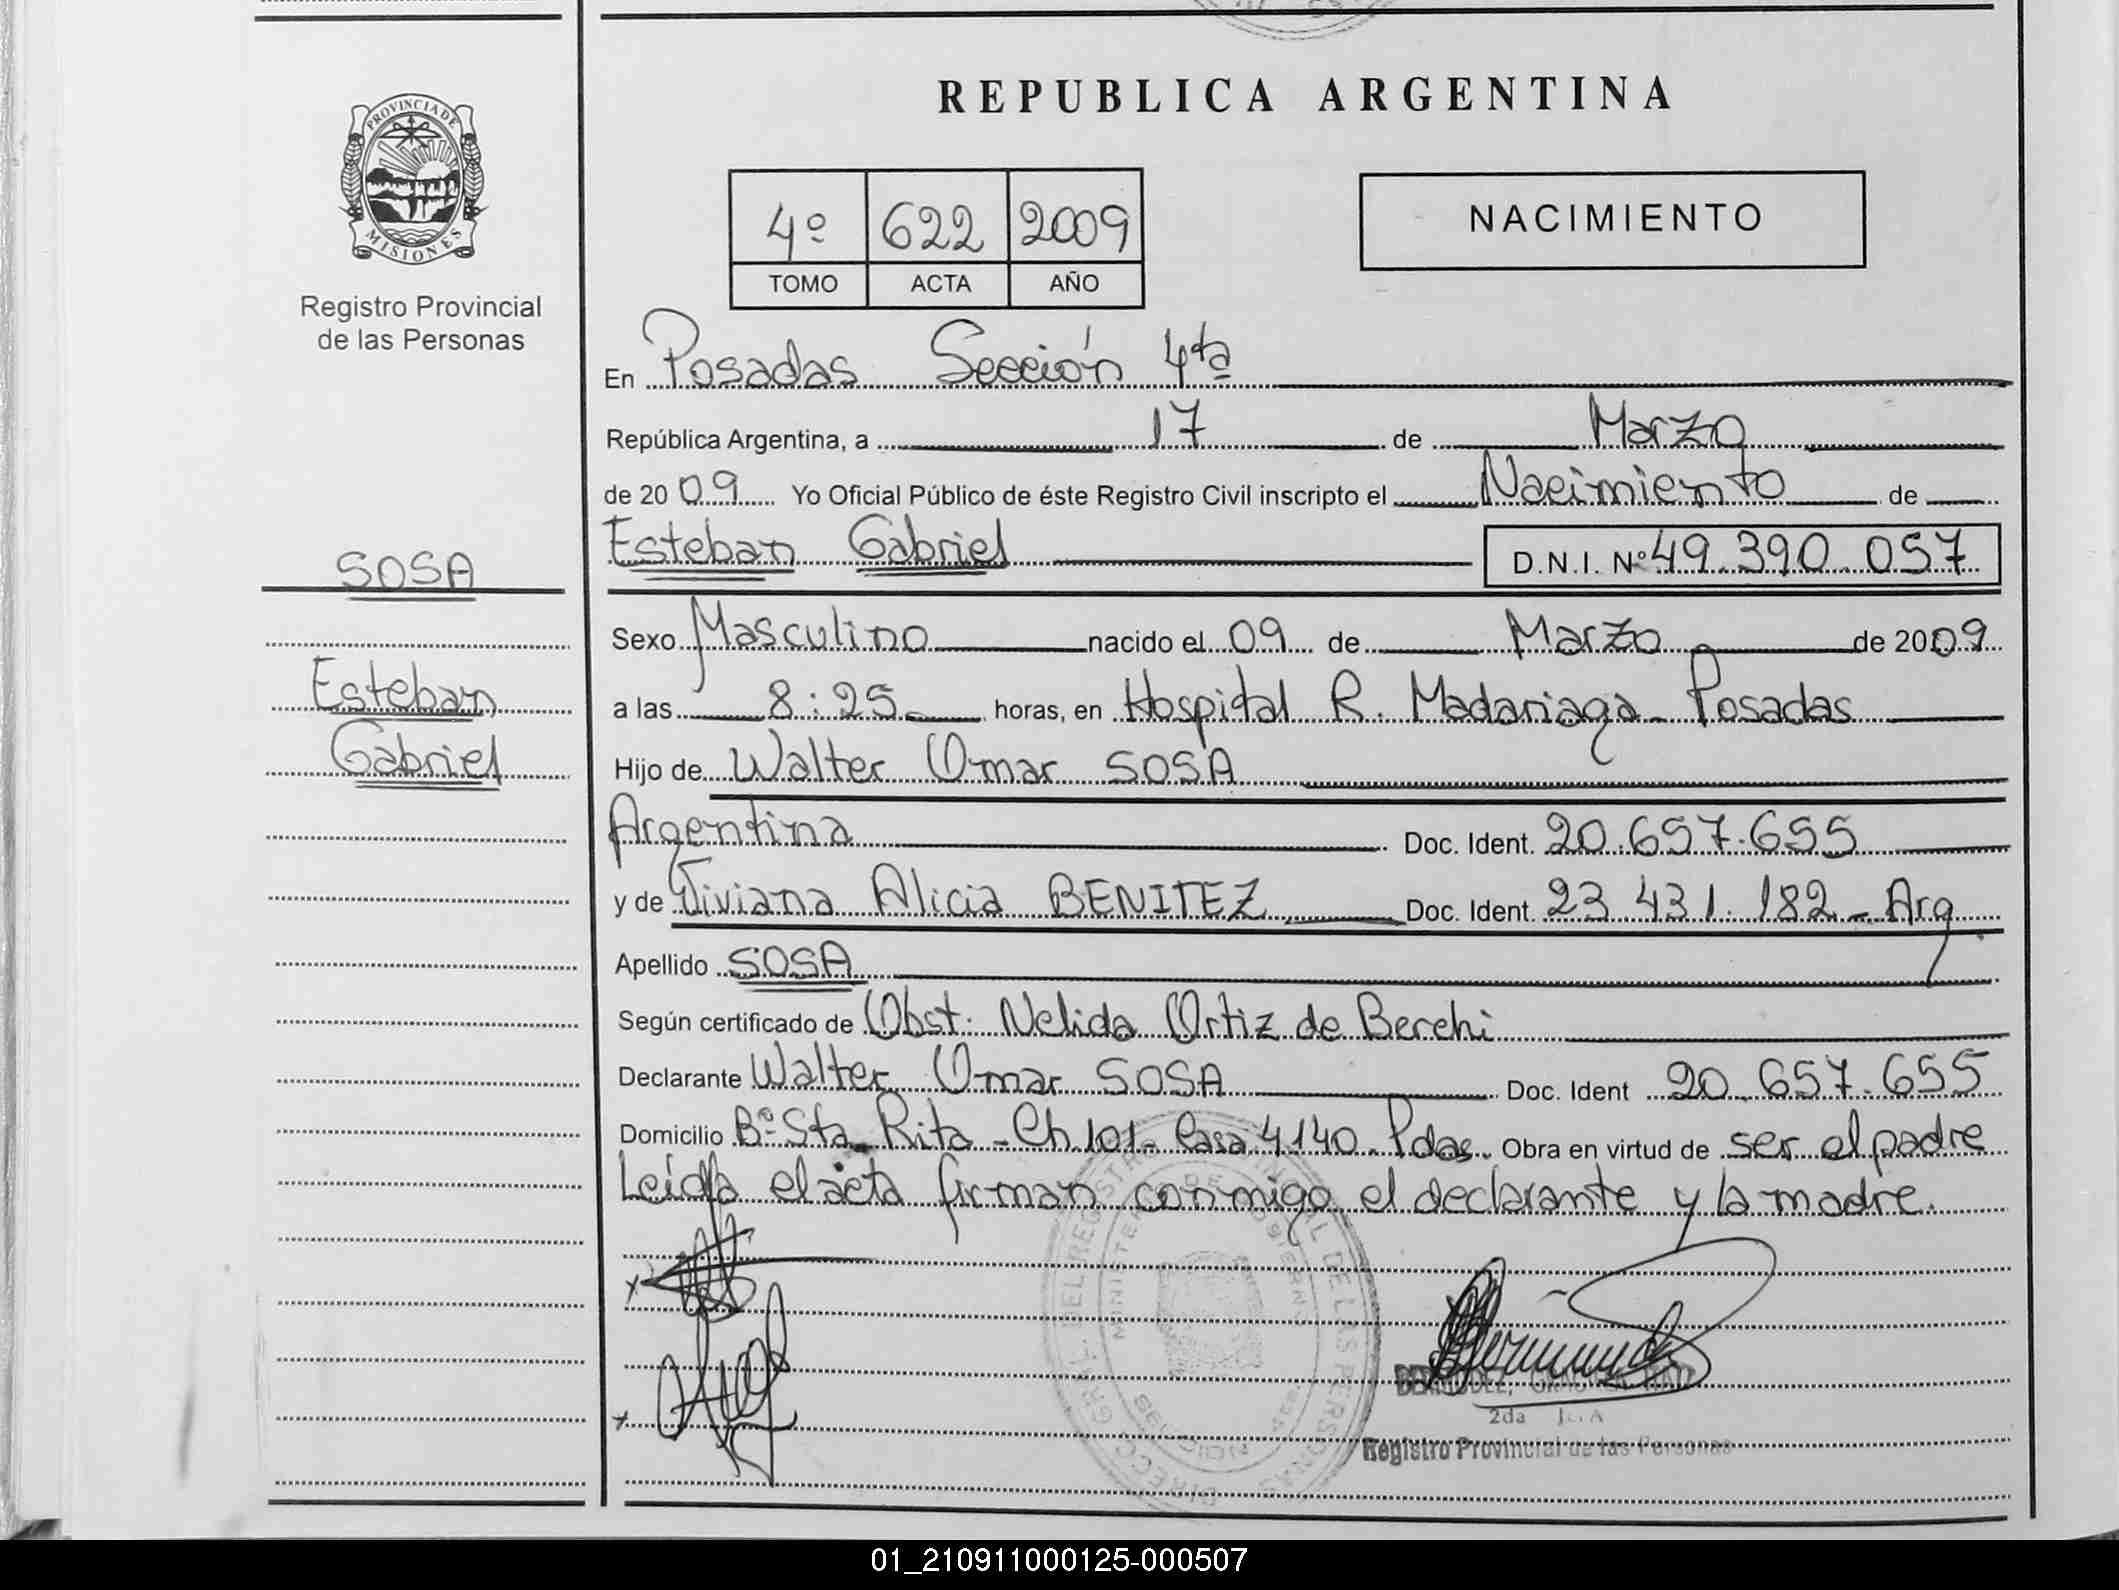 REPUBLICA ARGENTINA
PROVINCIA DE
MISIONES
Registro Provincial
de las Personas
4º 622 2009
TOMO ACTA AÑO
NACIMIENTO
En Posadas Sección 4ta
República Argentina, a 17 de Marzo
de 2009 Yo Oficial Público de éste Registro Civil inscripto el Nacimiento de
Esteban Gabriel D.N.I. Nº 49.390.057
SOSA
Esteban
Gabriel
Sexo Masculino nacido el 09 de Marzo de 2009
a las 8:25 horas, en Hospital R. Madariaga Posadas
Hijo de Walter Omar SOSA
Argentina Doc. Ident. 20.657.655
y de Viviana Alicia BENITEZ Doc. Ident. 23 431.182 - Arg
Apellido SOSA
Según certificado de Obst. Nelida Ortiz de Berchi
Declarante Walter Omar SOSA Doc. Ident 20.657.655
Domicilio Bº Sta Rita - Ch.101 - Casa 4140. Pdas. Obra en virtud de ser el padre
Leída el acta firman conmigo el declarante y la madre.
2da
Registro Provincial de las Personas
01_210911000125-000507